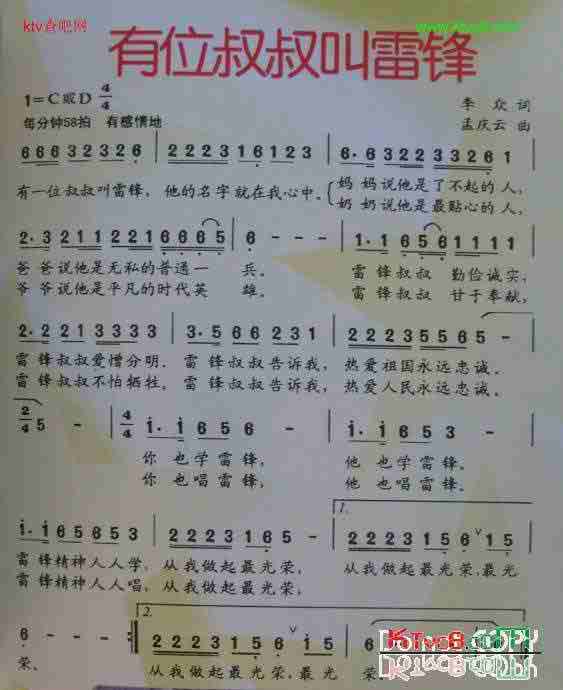 ktv食吧网
有位叔叔叫雷锋
1=C或D 4/4
每分钟58拍 有感情地
李众 词
孟庆云 曲
6 6 6 3 2 3 2 6 | 2 2 2 3 1 6 1 2 3 | 6· 6 3 2 2 3 3 2 6 1
有一位叔叔叫雷锋, 他的名字就在我心中。 妈妈说他是了不起的人,
奶奶说他是最贴心的人,
2· 3 2 1 1 2 2 1 6 6 6 5 | 6 - - - | 1· 1 6 5 6 1 1 1 1
爸爸说他是无私的普通一 兵。 雷锋叔叔 勤俭诚实,
爷爷说他是平凡的时代英 雄。 雷锋叔叔 甘于奉献,
2· 2 2 1 3 3 3 3 | 3· 5 6 6 2 3 1 | 2 2 2 2 5 5 6 5
雷锋叔叔爱憎分明. 雷锋叔叔告诉我, 热爱祖国永远忠诚。
雷锋叔叔不怕牺牲, 雷锋叔叔告诉我, 热爱人民永远忠诚.
2/4 5 - | 4/4 i· i 6 5 6 - | i· i 6 5 3 -
你也学雷锋, 他也学雷锋。
你也唱雷锋, 他也唱雷锋.
i· i 6 5 6 5 3 | 2 2 2 3 1 6 5 - | 1. 2 2 2 3 1 5 6 1 5
雷锋精神人人学, 从我做起最光荣, 从我做起最光荣,最光
雷锋精神人人唱, 从我做起最光荣,
6 - - - | 2. 2 2 2 3 1 5 6 i 5 | 6
荣、 从我做起最光荣,最光 荣
KTVC8 COPY